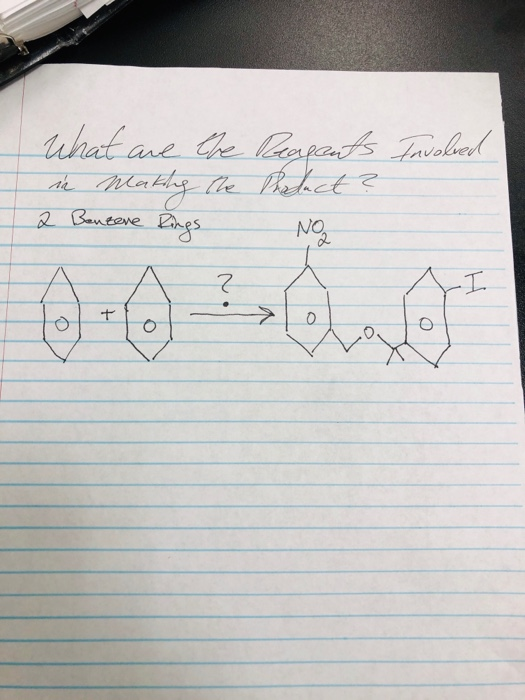 What are the Reagents Involved
in Making the Product?
2 Benzene Rings
NO2
?
I
+
O
O
O
O
O